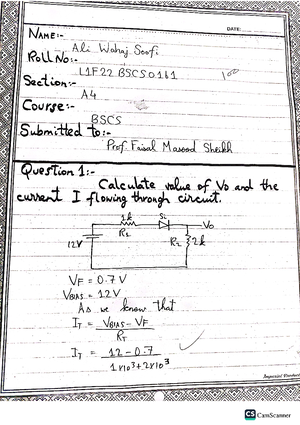 DATE:
NAME:- Ali Wahaj Soofi
Roll No:- L1F22 BSCS 0161
100
Section:- A4
Course:- BSCS
Submitted to:- Prof. Faisal Masood Sheikh
Question 1:-
Calculate value of Vo and the
current I flowing through circuit.
1k Si Vo
12V R1 R2 2k
VF = 0.7 V
VBIAS = 12V
As we know that
IT = VBIAS - VF
RT
IT = 12 - 0.7
1x10³ + 2x10³
CS CamScanner